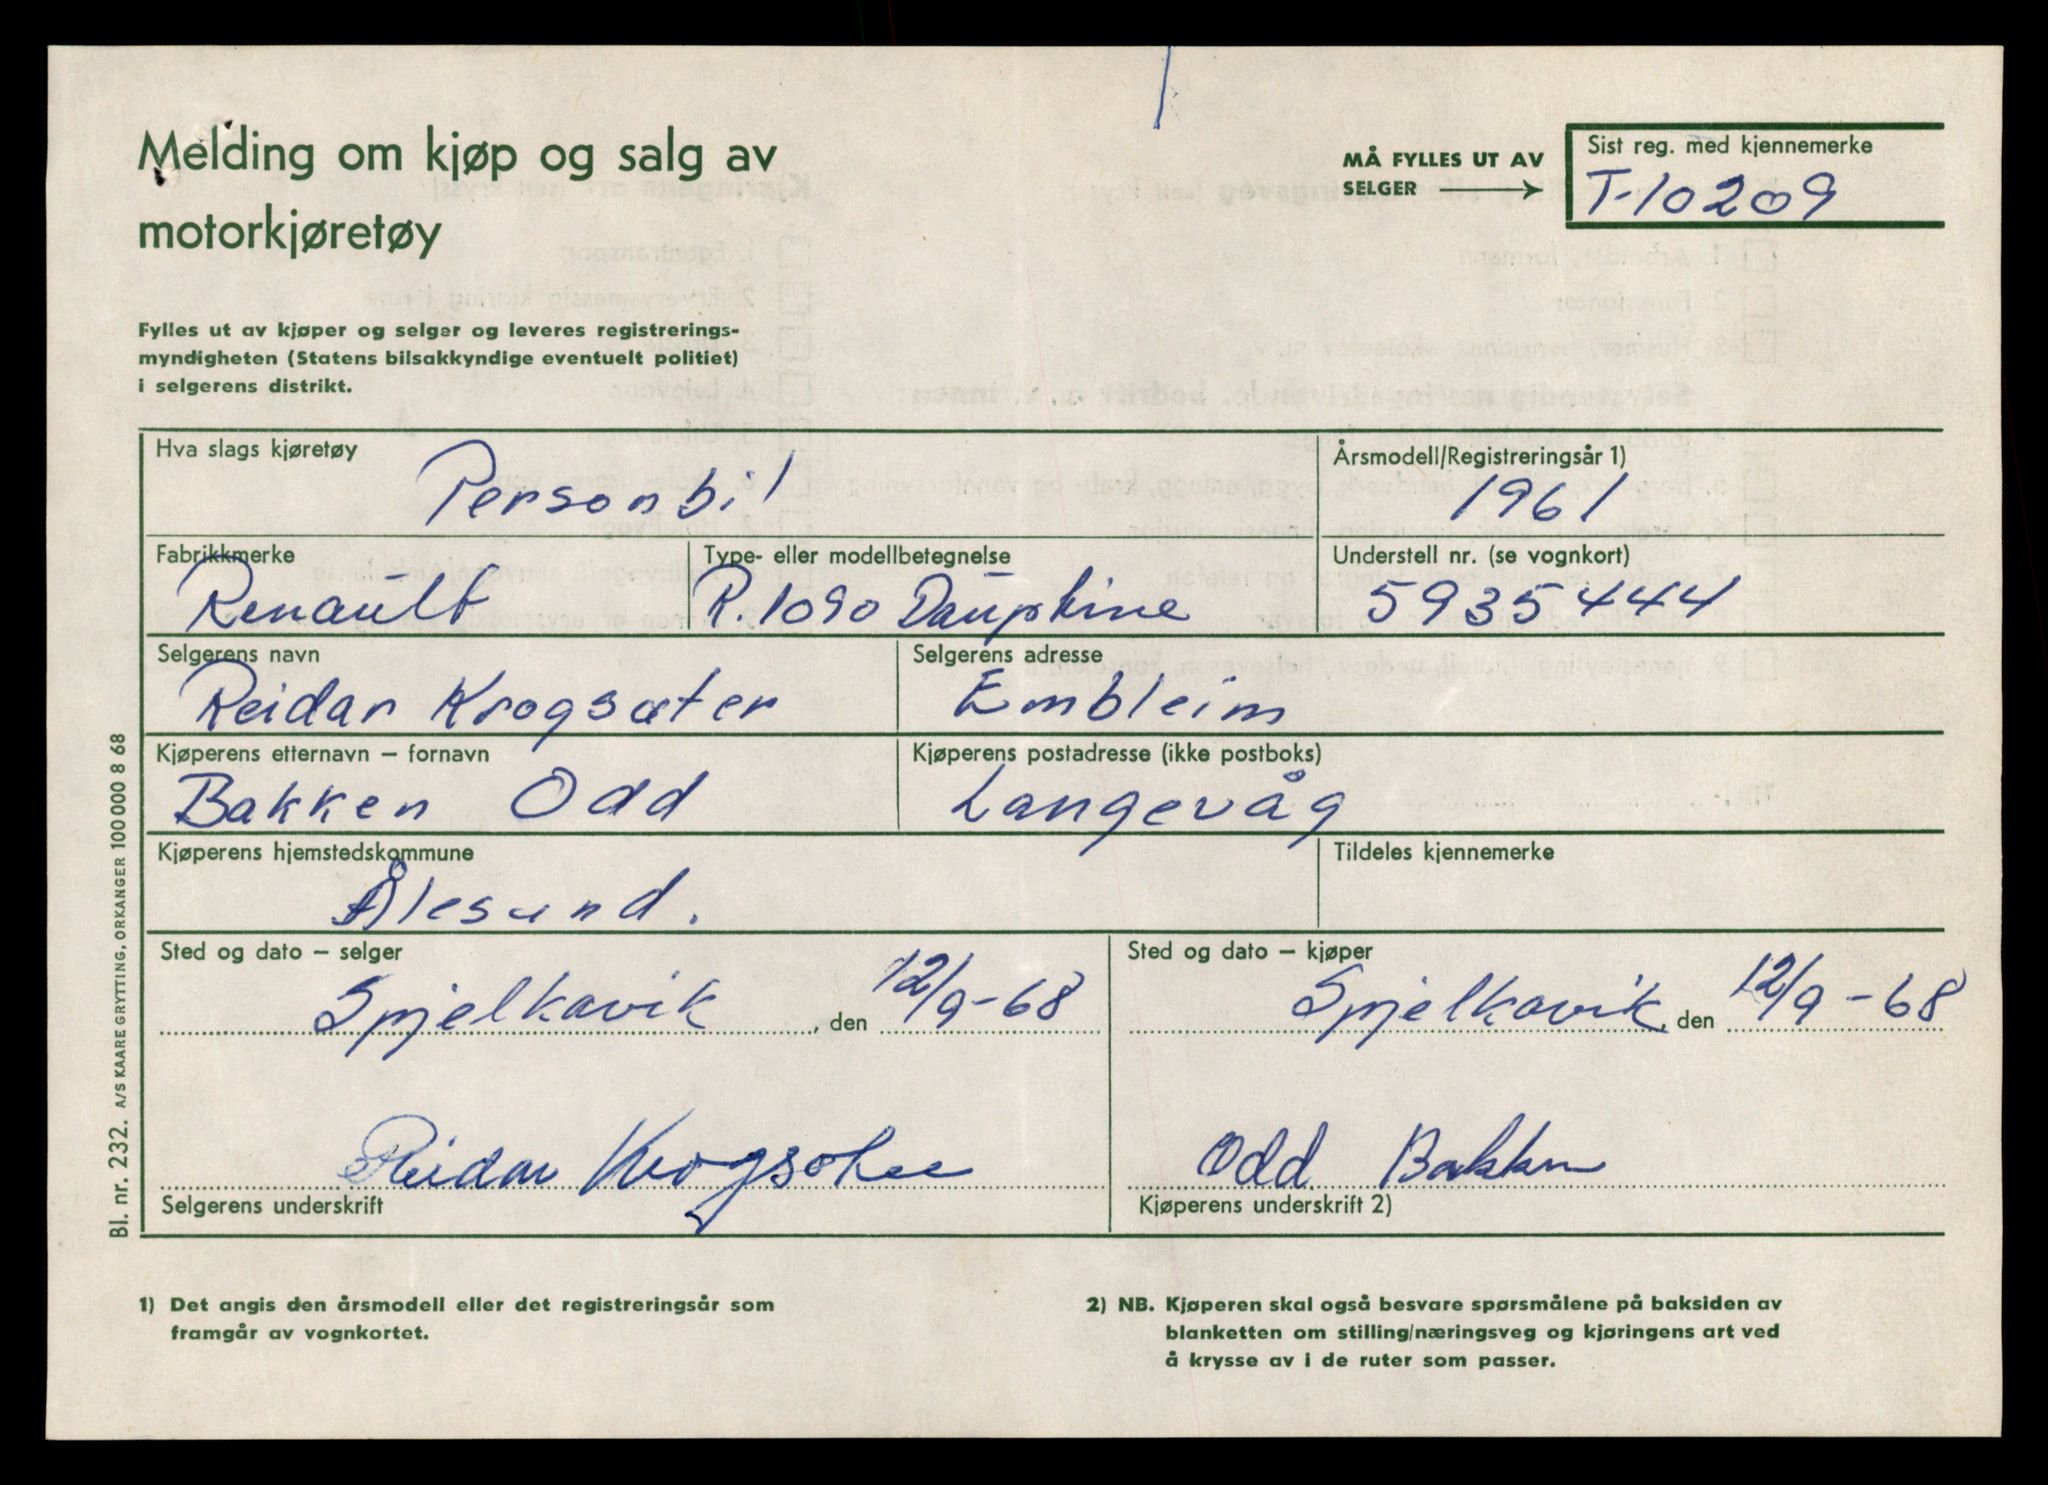 Melding om kjøp og salg av
motorkjøretøy
MÅ FYLLES UT AV
SELGER
Sist reg. med kjennemerke
T-10209
Fylles ut av kjøper og selger og leveres registrerings-
myndigheten (Statens bilsakkyndige eventuelt politiet)
i selgerens distrikt.
Hva slags kjøretøy
Personbil
Årsmodell/Registreringsår 1)
1961
Fabrikkmerke
Renault
Type- eller modellbetegnelse
R.1090 Dauphine
Understell nr. (se vognkort)
5935444
Selgerens navn
Reidar Krogsæter
Selgerens adresse
Embleim
Kjøperens etternavn – fornavn
Bakken Odd
Kjøperens postadresse (ikke postboks)
Langevåg
Kjøperens hjemstedskommune
Ålesund.
Tildeles kjennemerke
Sted og dato – selger
Spjelkavik, den 12/9-68
Sted og dato – kjøper
Spjelkavik, den 12/9-68
Reidar Krogsæter
Selgerens underskrift
Odd Bakken
Kjøperens underskrift 2)
Bl. nr. 232. A/S KAARE GRYTTING, ORKANGER 100 000 8 68
1) Det angis den årsmodell eller det registreringsår som
framgår av vognkortet.
2) NB. Kjøperen skal også besvare spørsmålene på baksiden av
blanketten om stilling/næringsveg og kjøringens art ved
å krysse av i de ruter som passer.